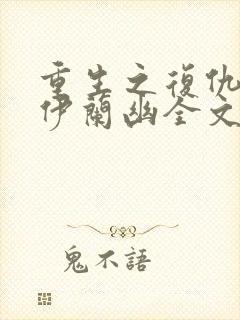 重生之復仇
伊蘭幽全文
鬼不語